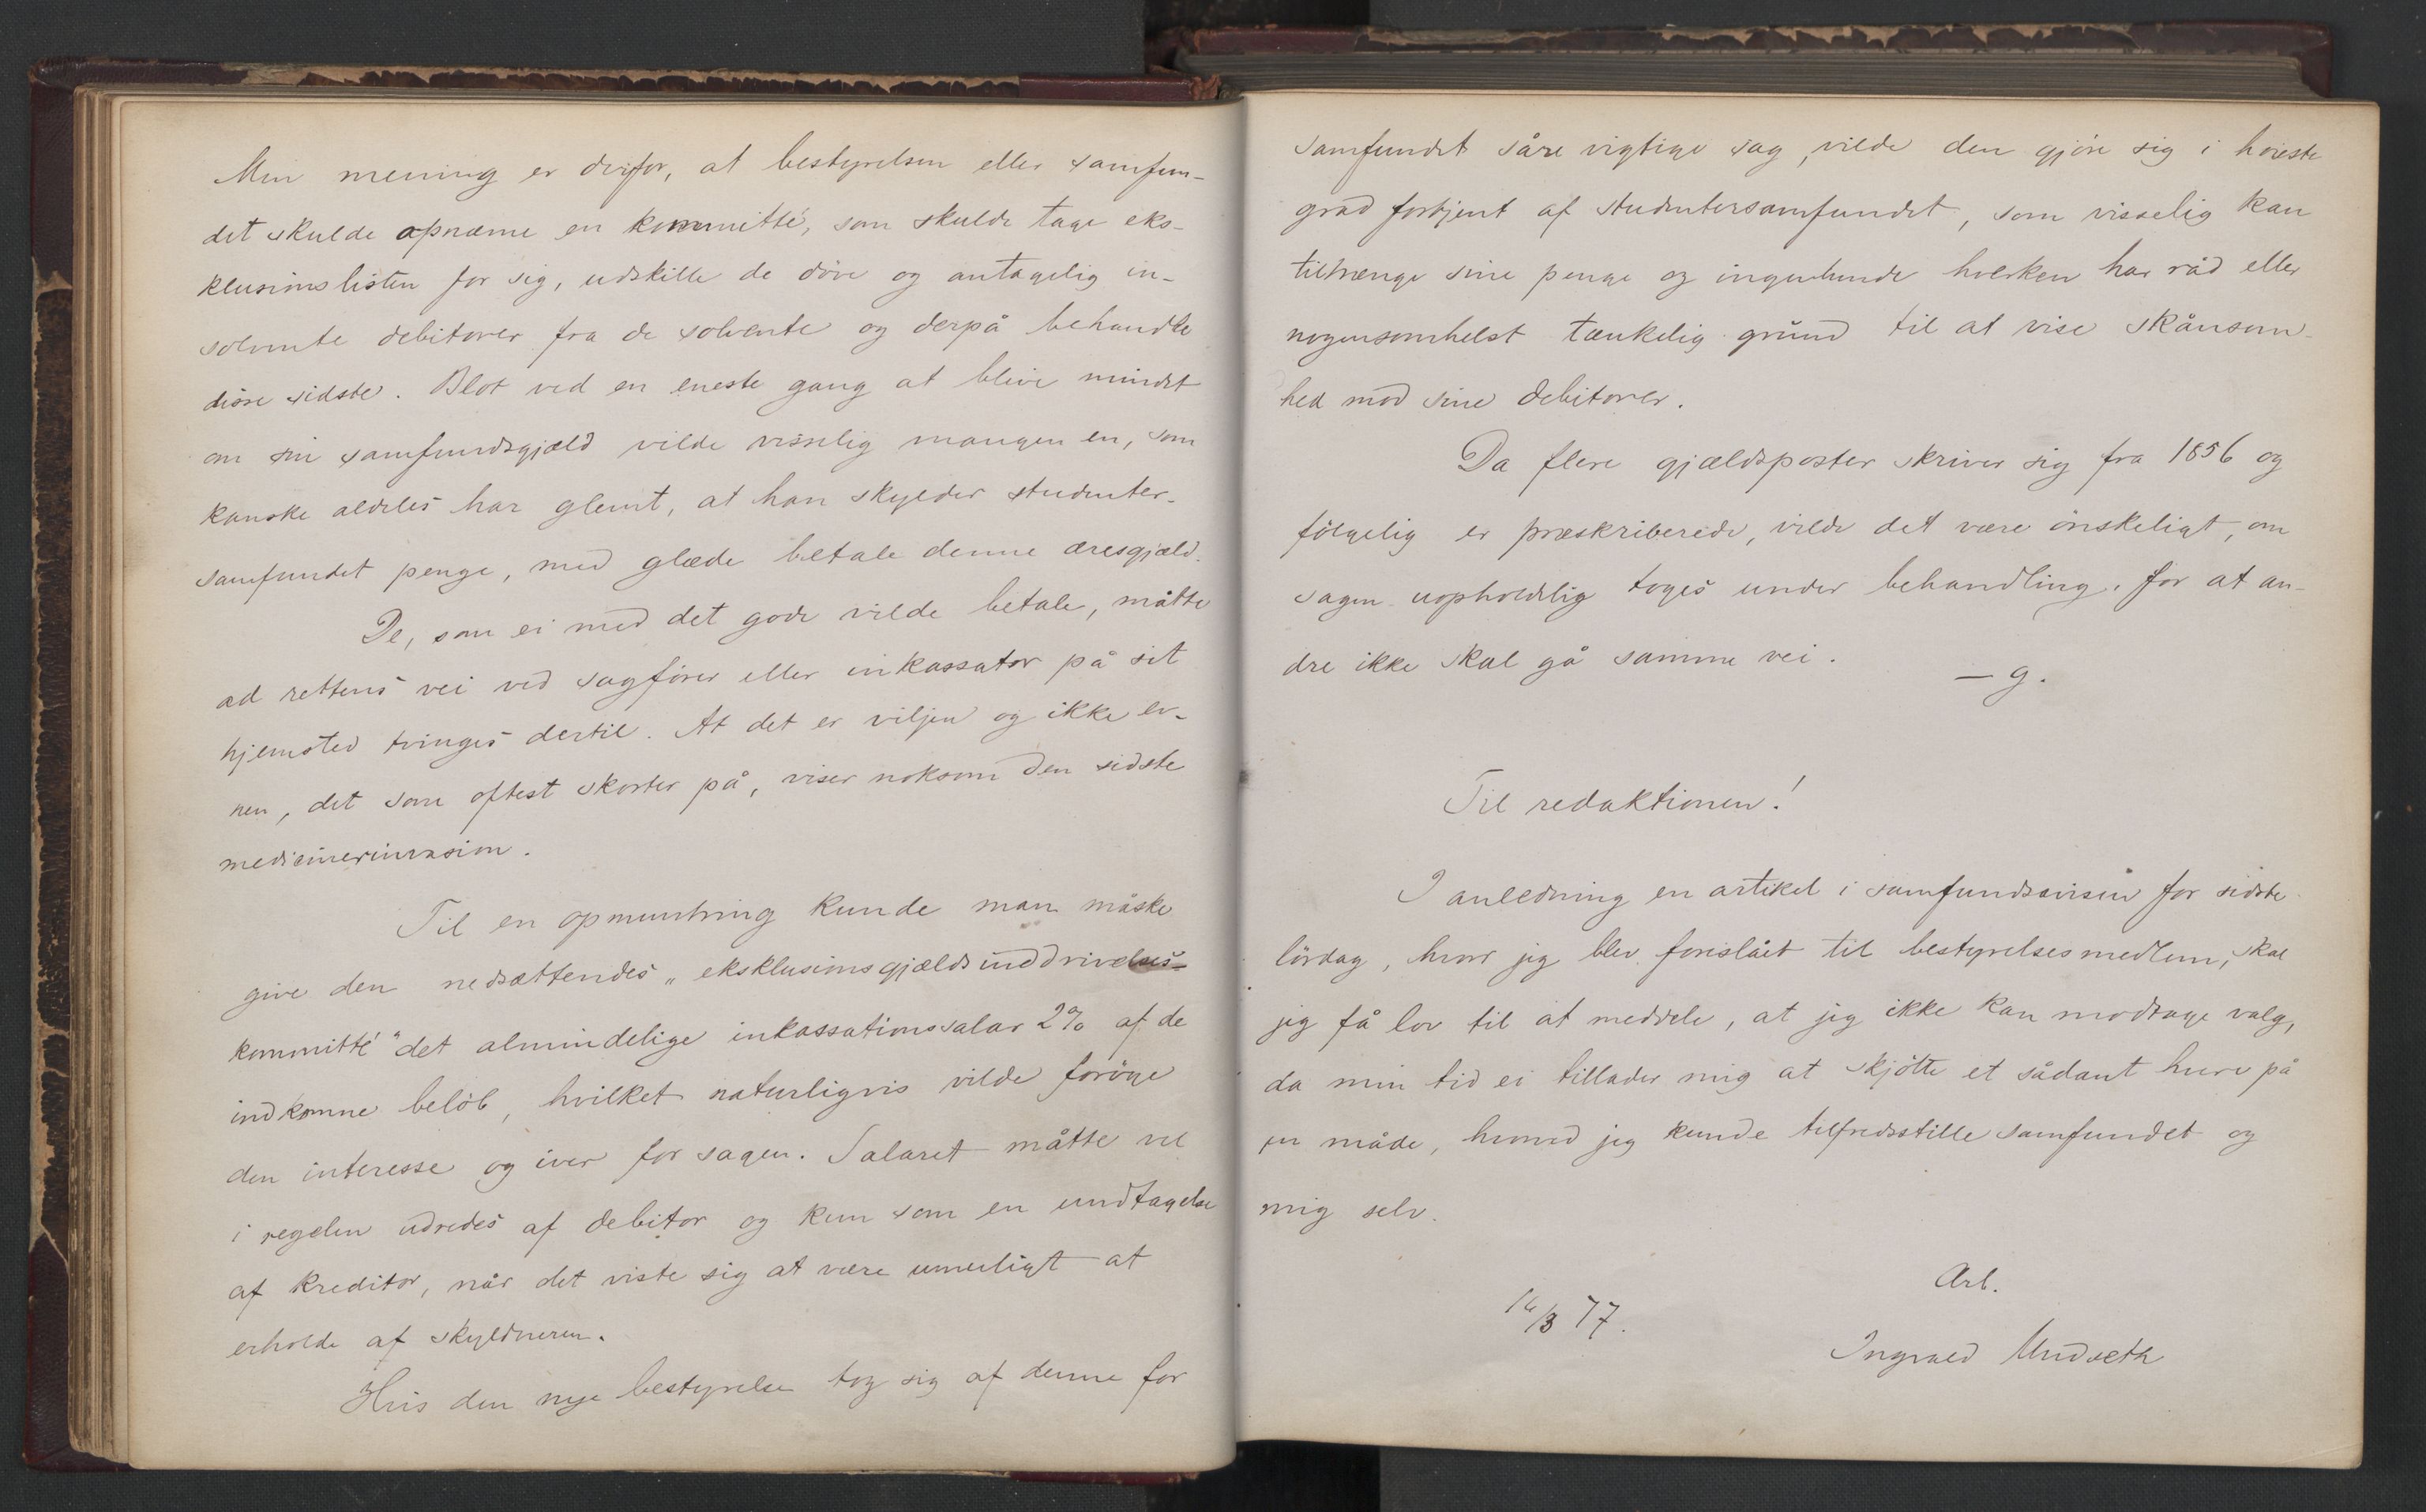 Min mening er derfor, at bestyrelsen eller samfun-
det skulde opnævne en kommitté, som skulde tage eks-
klusionslisten for sig, udskille de döde og antagelig in-
solvente debitorer fra de solvente og derpå behandle
disse sidste. Blot ved en eneste gang at blive mindet
om sin samfundsgjæld vilde visselig mangen en, som
kanske aldeles har glemt, at han skylder studenter-
samfundet penge, med glæde betale denne æresgjæld.
De, som ei med det gode vilde betale, måtte
ad rettens vei ved sagförer eller inkassator på sit
hjemsted tvinges dertil. At det er viljen og ikke ev-
nen, det som oftest skorter på, viser noksom den sidste
medicinerinvasion.
Til en opmuntring kunde man måske
give den nedsættendes „eksklusionsgjældsinddrivelses-
kommitté" det almindelige inkassationssalar 2% af de
indkomne belöb, hvilket naturligvis vilde foröge
den interesse og iver for sagen. Salaret måtte vel
i regelen udredes af debitor og kun som en undtagelse
af kreditor, når det viste sig at være umuligt at
erholde af skyldneren.
Hvis den nye bestyrelse tog sig af denne for
samfundet såre vigtige sag, vilde den gjöre sig i höieste
grad fortjent af studentersamfundet, som visselig kan
tiltrænge sine penge og ingenlunde hverken har råd eller
nogensomhelst tænkelig grund til at vise skånsom-
hed mod sine debitorer.
Da flere gjældsposter skriver sig fra 1856 og
fölgelig er præskriberede, vilde det være önskeligt, om
sagen uopholdelig toges under behandling, for at an-
dre ikke skal gå samme vei.
— g.
Til redaktionen!
I anledning en artikel i samfundsavisen for sidste
lördag, hvor jeg blev foreslået til bestyrelsesmedlem, skal
jeg få lov til at meddele, at jeg ikke kan modtage valg,
da min tid ei tillader mig at skjötte et sådant hverv på
en måde, hvorved jeg kunde tilfredsstille samfundet og
mig selv.
Arb.
/3 77.
Ingvald Undseth